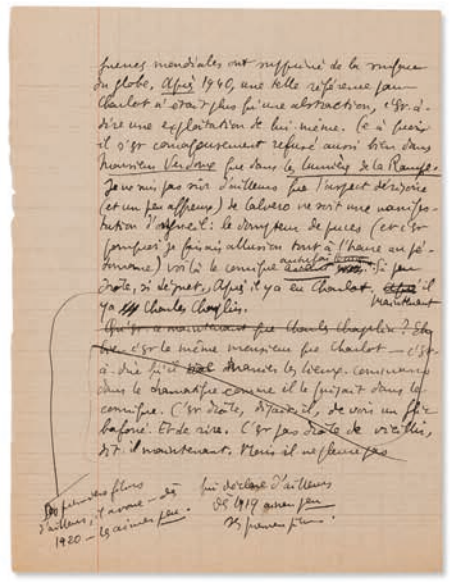 guerres mondiales ont supprimé de la surface
du globe. Après 1940, une telle référence pour
Charlot n'était plus qu'une abstraction, c'est-à-
dire une exploitation de lui-même. Ce à quoi
il s'est courageusement refusé aussi bien dans
Monsieur Verdoux que dans les Lumières de la Rampe.
Je ne suis pas sûr d'ailleurs que l'aspect dérisoire
(et un peu affreux) de Calvero ne soit une manifes-
tation d'orgueil : le dompteur de puces (et c'est
pourquoi je faisais allusion tout à l'heure au pé-
tomane) voilà le comique Si peu
drôle, si Après il y a eu Charlot. il
y a Charles Chaplin. maintenant
Qu'est-ce maintenant que Charles Chaplin ? Eh
bien c'est le même monsieur que Charlot — c'est-
à-dire qu'il les lieux communs
dans le dramatique comme il le faisait dans le
comique. C'est drôle, disait-il, de voir un flic
bafoué. Et de rire. C'est pas drôle de vieillir,
dit-il maintenant. Mais il ne pleure pas
premiers films
d'ailleurs, il avoue — dès
1920 — les aimer peu.
qui déclare d'ailleurs
dès 1919 aimer peu
ses premiers films.